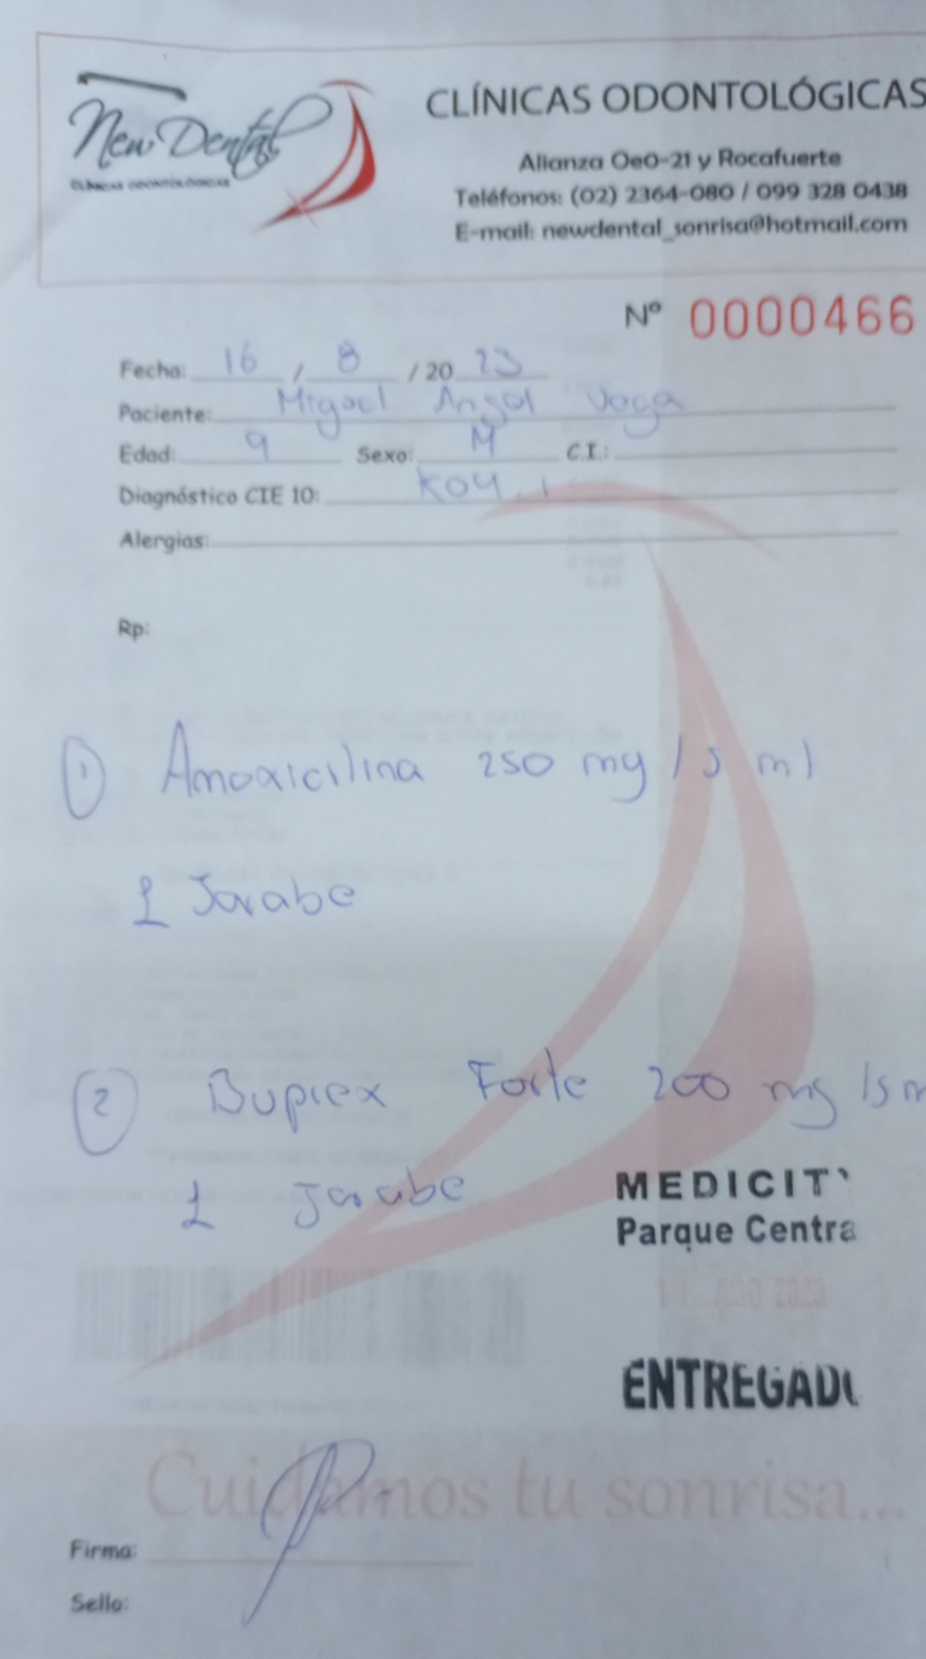 New Dental
CLÍNICAS ODONTOLÓGICAS
CLÍNICAS ODONTOLÓGICAS
Alianza Oe0-21 y Rocafuerte
Teléfonos: (02) 2364-080 / 099 328 0438
E-mail: newdental_sonrisa@hotmail.com
Nº 0000466
Fecha: 16 / 8 / 20 23
Paciente: Miguel Angel Vega
Edad: 9 Sexo: M C.I.:
Diagnóstico CIE 10: K04.1
Alergias:
Rp:
1 Amoxicilina 250 mg / 5 ml
1 Jarabe
2 Buprex Forte 200 mg /5 m
1 Jarabe
MEDICITY
Parque Centra
ENTREGADO
Cuidamos tu sonrisa...
Firma:
Sello: